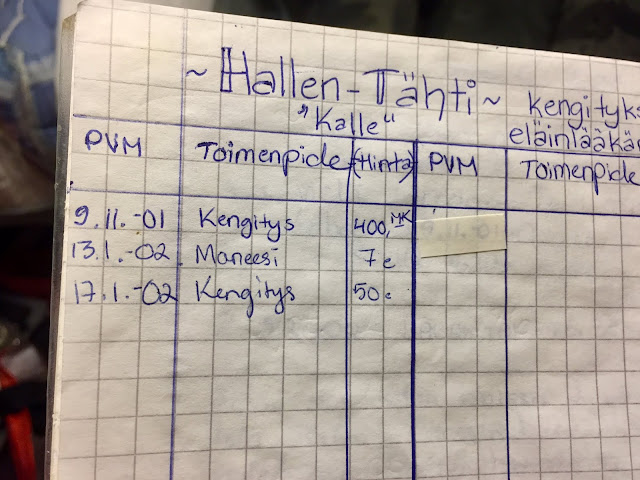 ~ Hallen-Tähti ~ kengityks
"Kalle" eläinlääkär
PVM Toimenpide (Hinta) PVM Toimenpide
9.11.-01 Kengitys 400,MK
13.1.-02 Maneesi 7e
17.1.-02 Kengitys 50e